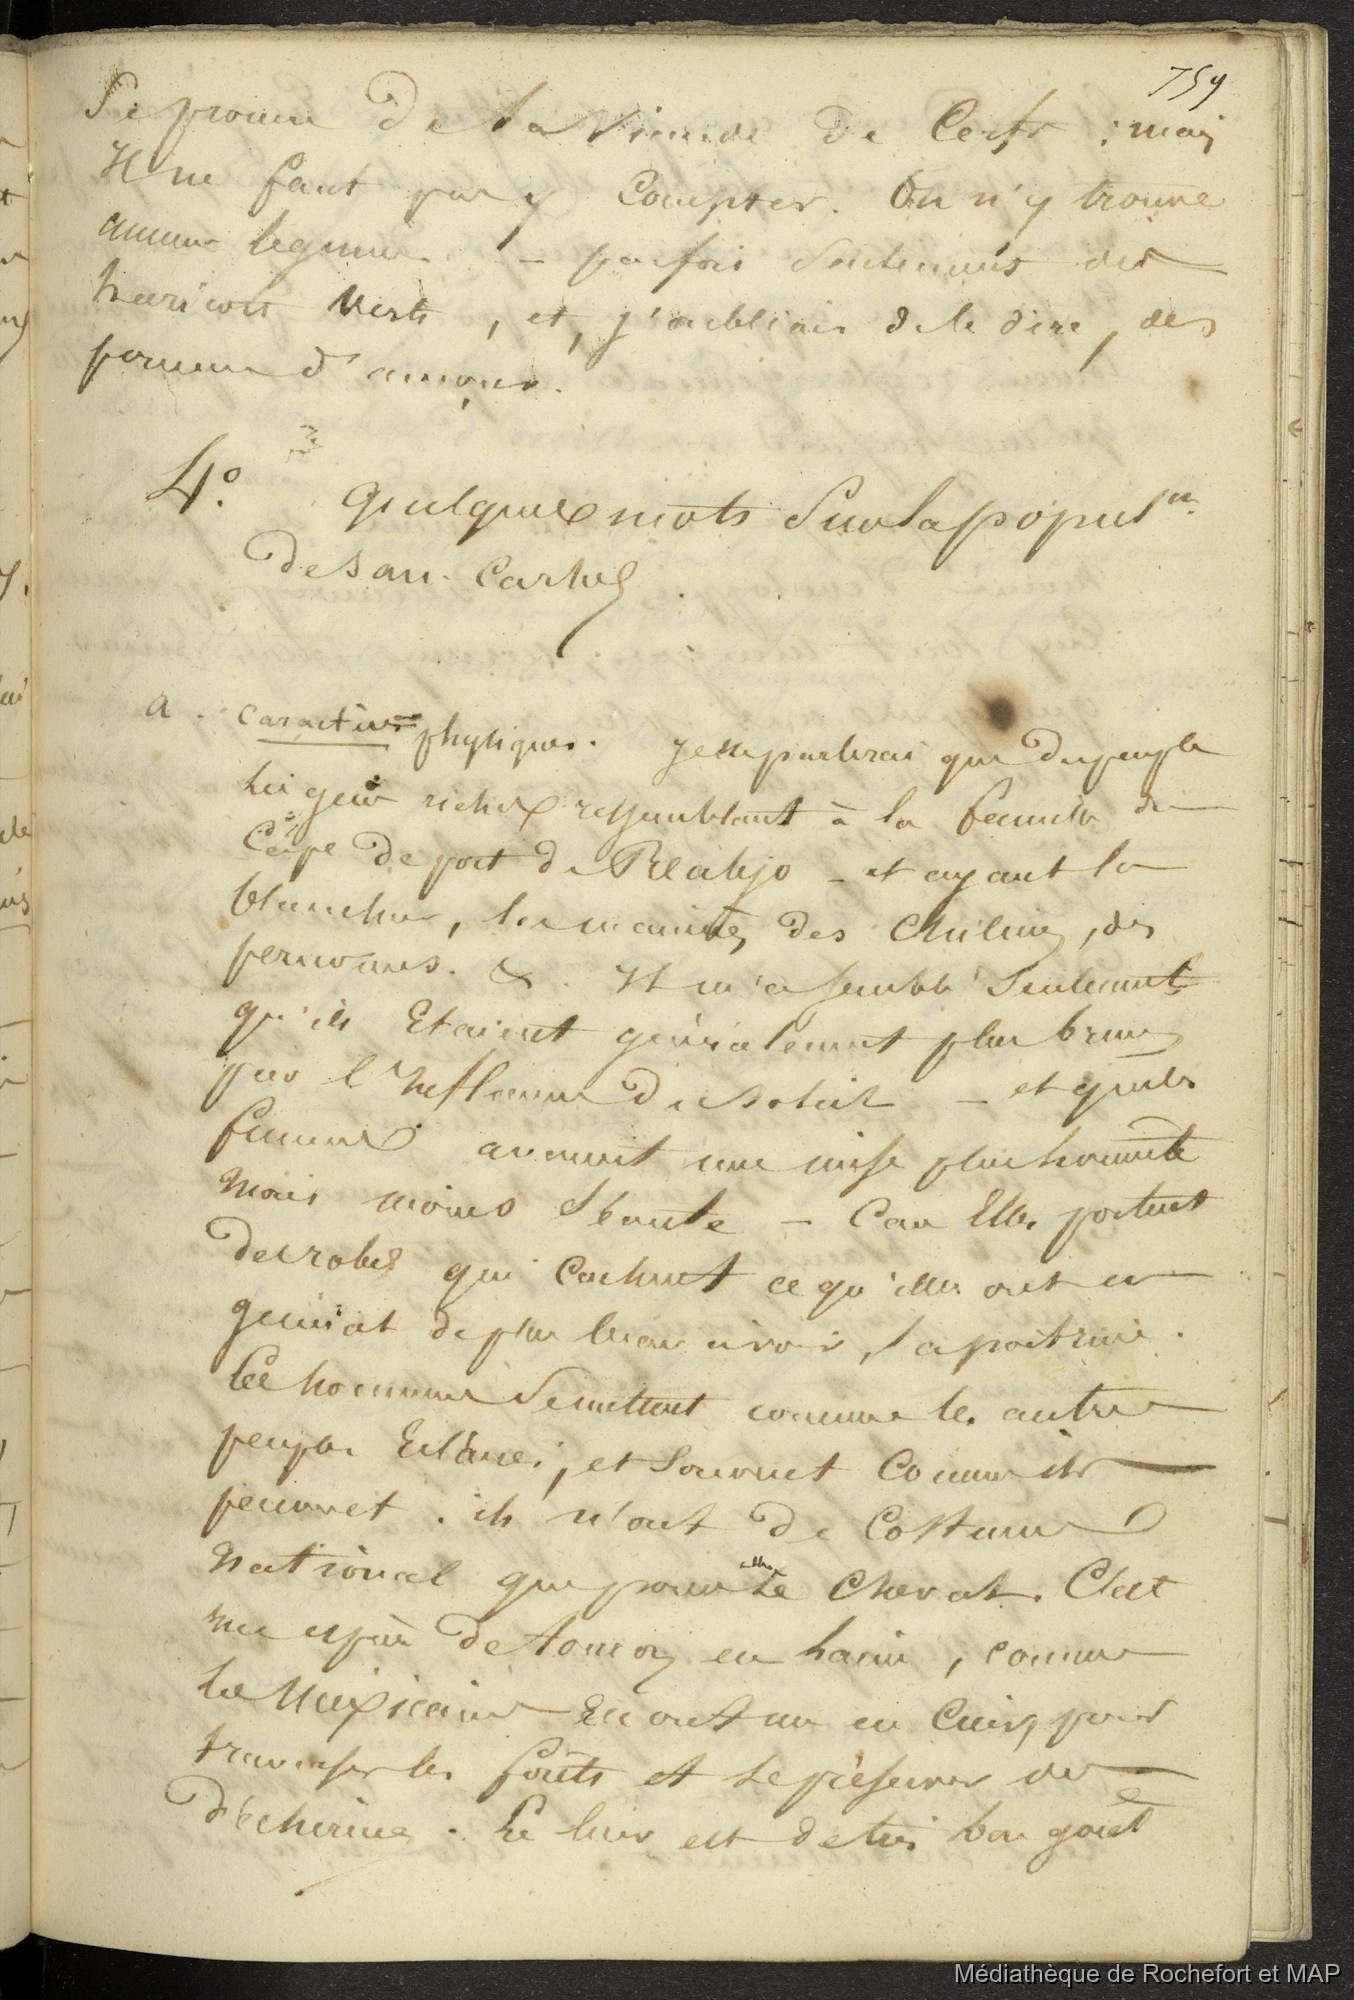 759
Se procurer de la viande de Cerfs ; mais
Il ne faut pas y Compter. On n'y trouve
aucun legume – parfois seulement des
haricots verts, et, j'oubliais de le dire, des
pommes d'amour.
4.° quelques mots sur la popul.on
de San-Carlos.
a. caractères physiques. Je ne parlerai que du peuple
les gens riches ressemblant à la famille de
Cape de port de Realejo – et ayant la
blancheur, les manières des Chiliens, des
peruviens. &. Il m'a semblé seulement
qu'ils Etaient généralement plus bruns
par l'Influence du soleil – et que les
femmes avaient une mise plus honnête
mais moins élégante – Car Elles portent
des robes qui cachent ce qu'elles ont en
général de plus beau à voir, la poitrine.
Les hommes se mettent comme les autres
peuples , et souvent Comme ils
peuvent. ils n'ont de Costume
national que pour aller à Cheval. C'est
une espèce de en laine, comme
les Mexicains En ont un en Cuir, pour
traverser les forêts et se préserver des
déchirures. Le leur est de très bon goût
Médiathèque de Rochefort et MAP